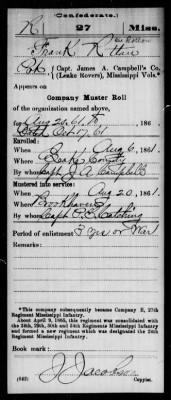 (Confederate.)
R 27 Miss.
Frank R
Pvt, Capt. James A. Campbell's Co.
(Leake Rovers), Mississippi Vols.*
Appears on
Company Muster Roll
of the organization named above,
for Aug 24, 61 to 186 .
Oct 61
Enlisted:
When Aug 6, 1861.
Where Leake County
By whom Capt J. A. Campbell
Mustered into service:
When Aug 20, 1861.
Where Brookhaven
By whom Capt
Period of enlistment 3 yrs or War
Remarks:
*This company subsequently became Company E, 27th
Regiment Mississippi Infantry.
About April 9, 1865, this regiment was consolidated with
the 24th, 29th, 30th and 34th Regiments Mississippi Infantry
and formed a new regiment which was designated the 24th
Regiment Mississippi Infantry.
Book mark:
J. Jacobson
(642) Copyist.